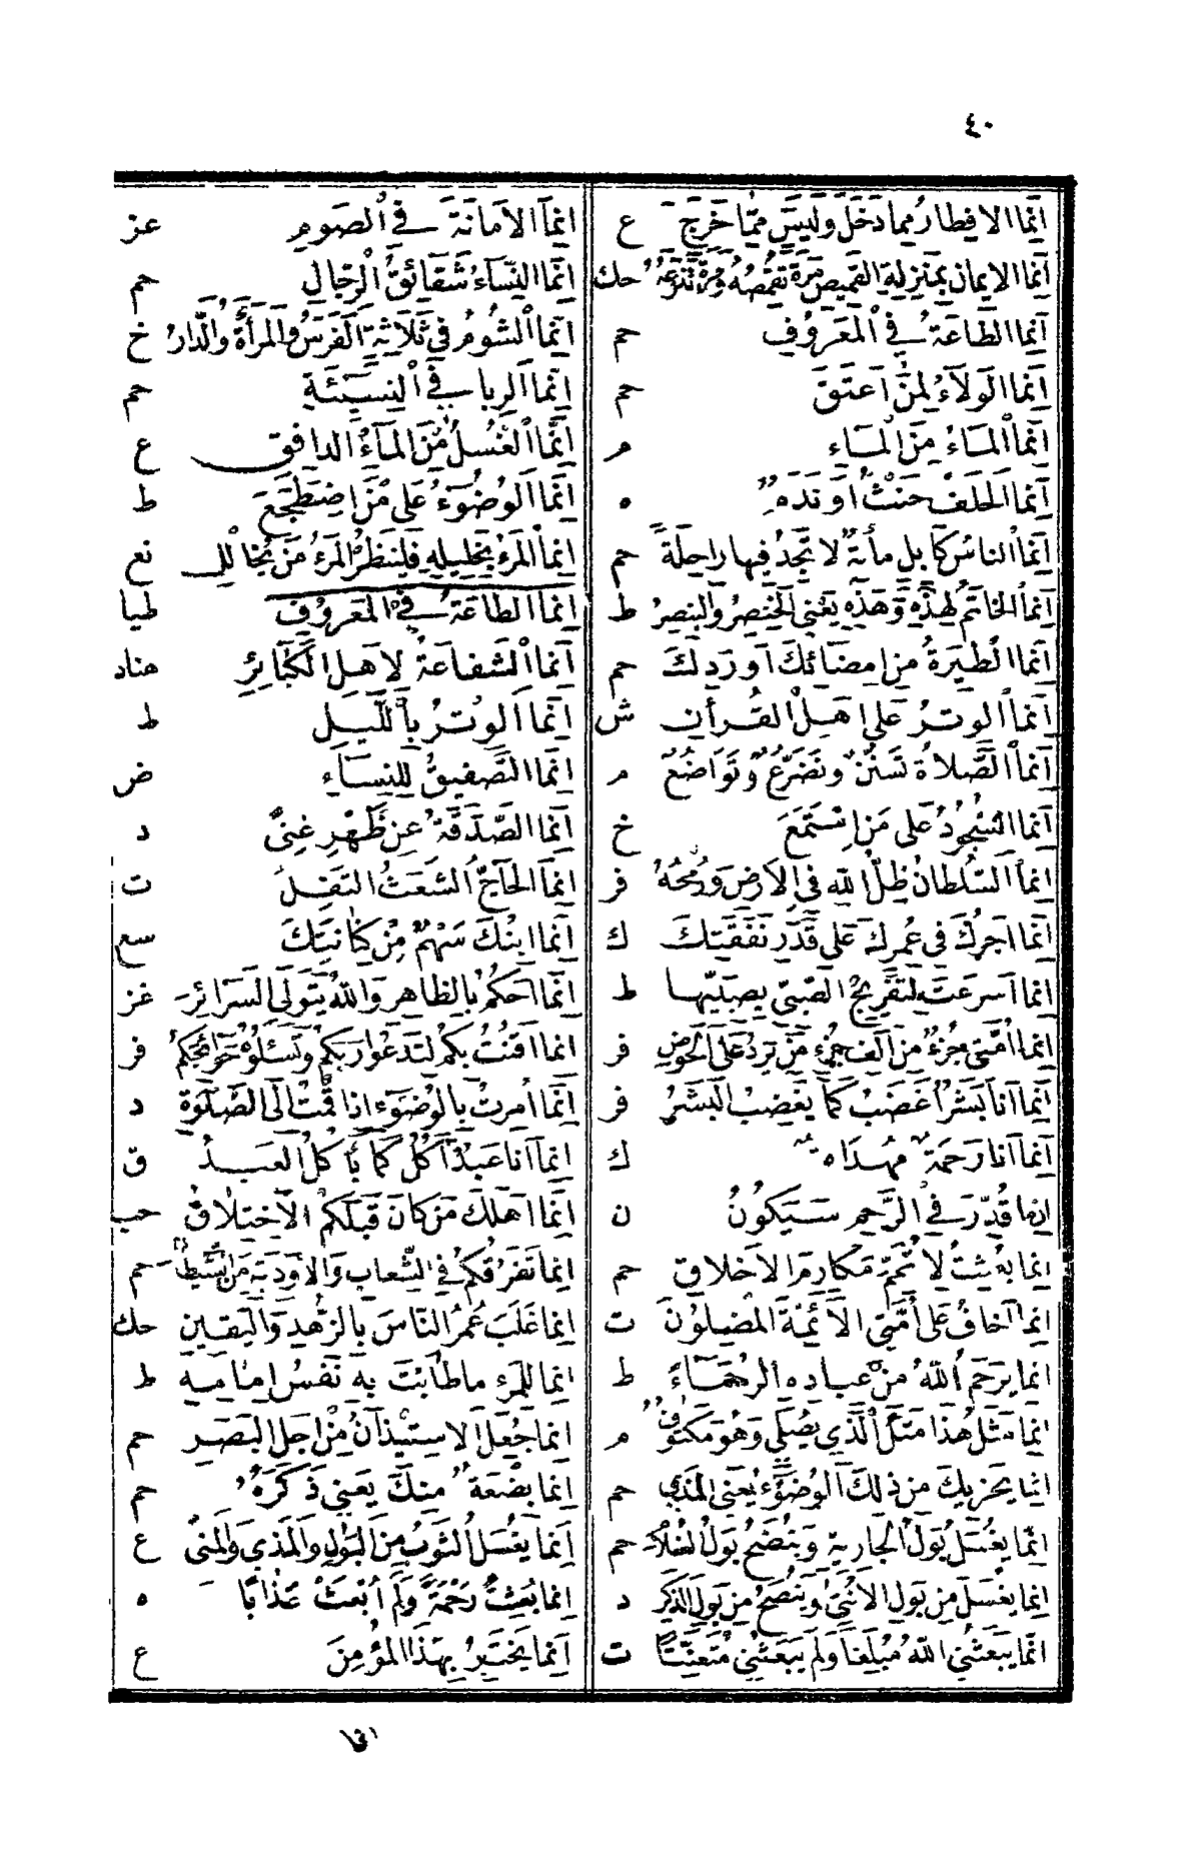 ٤٠
اِنَّمَا الافطارُ مما دَخَلَ وَلَيسَ مِمَّا خَرَجَ ع
اِنَّمَا الايمان بمَنزِلةِ القَمِيصِ مَرّةً تقمّصُهُ وَمَرّةً تَنزعُهُ حك
اِنَّمَا الطَّاعَةُ في الْمَعْرُوفِ حم
اِنَّمَا الوَلَاءُ لِمَنْ اَعتَقَ حم
اِنَّمَا الْمَاءُ مِنَ الْمَاءِ م
اِنَّمَا الحَلفُ حَنْثٌ اَوْ نَدَمٌ ه
اِنَّمَا الناسُ كَابلٍ مأةٍ لا تَجدُ فيها راحِلَةً حم
اِنَّمَا الخاتمُ لِهٰذِهِ وَهٰذِهِ يَعْنِى الخِنصِرُ والبِنصِرُ ط
اِنَّمَا الطِيَرَةُ مِن اِمضَائكَ اَو رَدِّكَ حم
اِنَّمَا الوترُ عَلى اهْلِ القُرأنِ ش
اِنَّمَا الصَّلاةُ تَسَنُّنٌ وتَضَرُّعٌ وتَوَاضُعٌ م
اِنَّمَا السُّجُودُ عَلى مَنِ اسْتَمَعَ خ
اِنَّمَا السُّلطَانُ ظِلُّ اللّٰهِ فِى الاَرضِ وَرُمحُهُ فر
اِنَّمَا اَجرُكَ فى عُمرِكَ عَلى قَدرِ نَفَقَتِكَ ك
اِنَّمَا اَسرَعَت لِتَفريحُ الصَّبِىِّ بِصَبِيّها ط
اِنَّمَا اُمَّتى جُزءٌ مِن اَلفِ جُزءٍ مِمَّن يَردُ عَلَىَّ الحَوضَ فر
اِنَّمَا اَنا بَشَرٌ اَغضَبُ كَمَا يَغضِبُ البَشَرُ فر
اِنَّمَا اَنا رَحمَةٌ مُهْدَاةٌ ك
اِنما قُدِّرَ فى الرَّحِمِ سَيَكُونُ ن
اِنَّمَا بُعِثتُ لاُتَمِّمَ مَكَارِمَ الاَخلاقِ حم
اِنَّمَا اَخافُ عَلى اُمَّتى الاَئِمَّةَ المُضِلُّونَ ت
اِنَّمَا يَرحَمُ اللّٰهُ مِنْ عبادِهِ الرُّحَمَاءَ ط
اِنَّمَا مَثَلُ هٰذَا مَثَلُ الَّذِى يُصَلّى وَهُوَ مَكتُوفٌ م
اِنَّمَا يَجزيكَ مِن ذٰلكَ الوُضُوءُ يَعنى المَذى حم
اِنَّمَا يُغْسَلُ بَولُ الجَارِيةِ وَيُنضَحُ بَولُ الغُلامِ حم
اِنَّمَا يغسَلُ مِن بَولِ الاُنثى وَيُنضَحُ مِن بَولِ الذَّكَرِ د
اِنَّمَا يَبعَثُنى اللّٰهُ مُبَلِّغاً وَلم يَبعَثنى مُتَعَنِّتاً ت
اِنَّمَا الاَمَانَةُ فى الصَومِ عز
اِنَّمَا النِّسَاءُ شَقَائقُ الْرِّجَالِ حم
اِنَّمَا الشُّومُ فى ثَلَاثَةٍ الفَرَسُ وَالْمَرأَةُ وَالدَّارُ خ
اِنَّمَا الربا فى النَّسِيْئَةِ حم
اِنَّمَا الْغُسلُ مِنَ المَآءِ الدافق ع
اِنَّمَا الوُضُوَءُ عَلى مَن اضطَجَعَ ط
اِنَّمَا المَرءُ بِخَلِيلِهِ فَليَنظُرِ المَرءُ مَن يُخالِل نع
اِنَّمَا الطاعَةُ في المَعرُوفِ طيا
اِنَّمَا الشفاعَةُ لاهلِ الكَبَائرِ هناد
اِنَّمَا الوترُ باللَّيلِ ط
اِنَّمَا التَّصفيقُ للنِسَاءِ ض
اِنَّمَا الصَّدَقَةُ عن ظَهْرِ غِنىً د
اِنَّمَا الحَآجُّ الشَّعَثُ التَفِلُ ت
اِنَّمَا ابنُكَ سَهمٌ مِنْ كنَانَتِكَ سع
اِنَّمَا اَحكُمُ بالظاهِرِ وَاللّٰهُ يَتَوَلَّى السَرَائِرَ غز
اِنَّمَا اقنُتُ بكُم لتَدعُوا رَبَّكُم وتَسئَلُوهُ حَوَائجكُم فر
اِنَّمَا اُمِرتُ بالوُضُوءِ اِذا قُمتُ اِلَى الصَّلٰوةِ د
اِنَّمَا اَنا عَبدٌ اٰكُلُ كَمَا يَأكُلُ العَبدُ ق
اِنَّمَا اَهلَكَ مَن كَانَ قَبلَكُم الاختِلافُ حب
اِنَّمَا تَفَرُّقُكُم فى الشِّعابِ وَالاَودِيَةِ مِنَ الشَّيطانِ حم
اِنَّمَا غَلَبَ عُمَرُ النَّاسَ بِالزُّهدِ وَاليَقين حك
اِنَّمَا للمَرءِ ماطَابَت بِهِ نَفسُ اِمَامِهِ ط
اِنَّمَا جُعِلَ الاستِيذَانُ مِنْ اَجلِ البَصَرِ حم
اِنَّمَا بَضْعَةٌ مِنكَ يَعنى ذَكَرَهُ حم
اِنَّمَا يغْسَلُ الثَوبُ مِنَ البَولِ وَالمَذىِ وَالمَنىِّ ع
اِنَّمَا بُعِثتُ رَحْمَةً وَلَم اُبعَثْ عَذَابًا ه
اِنَّمَا يَختَبِرُ بِهٰذَا المُؤمِنَ ع
انما